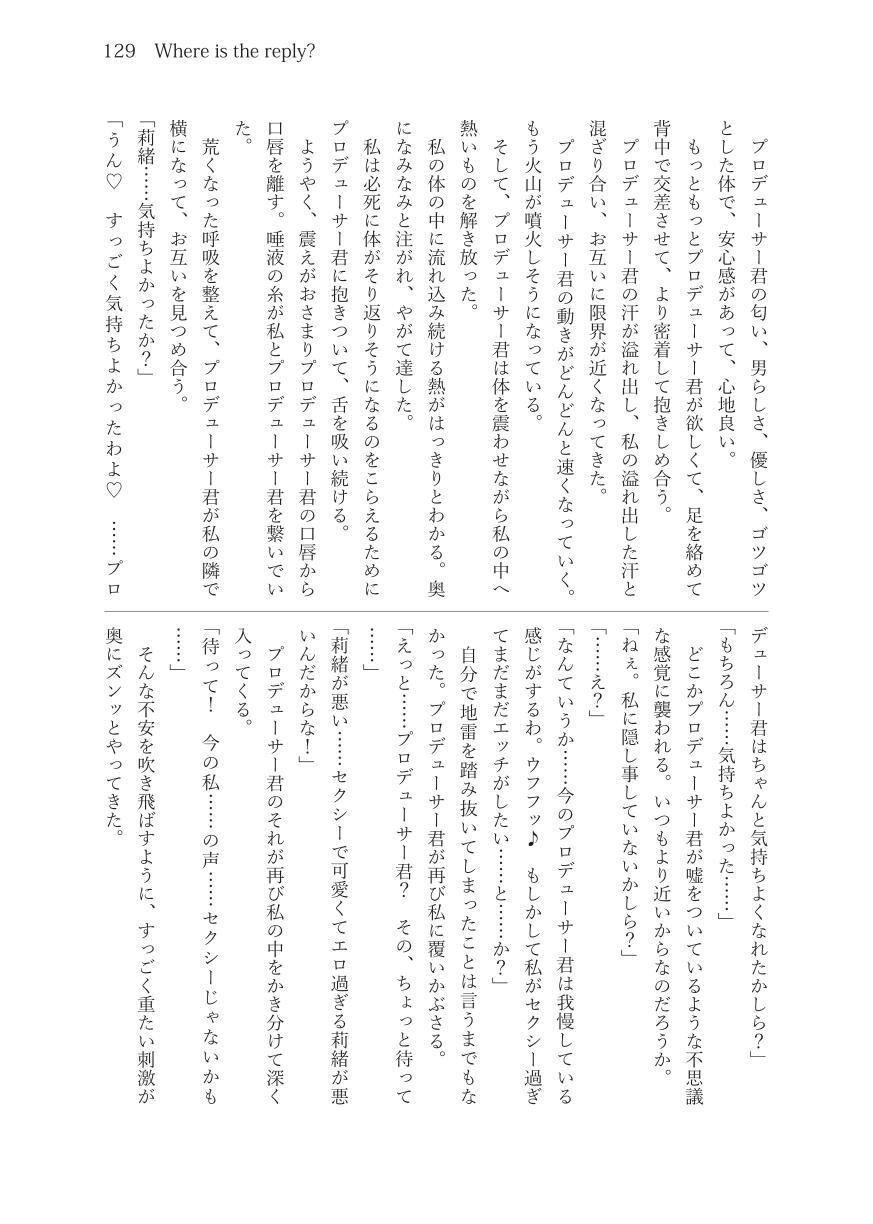 129 Where is the reply?
　プロデューサー君の匂い、男らしさ、優しさ、ゴツゴツ
とした体で、安心感があって、心地良い。
　もっともっとプロデューサー君が欲しくて、足を絡めて
背中で交差させて、より密着して抱きしめ合う。
　プロデューサー君の汗が溢れ出し、私の溢れ出した汗と
混ざり合い、お互いに限界が近くなってきた。
　プロデューサー君の動きがどんどんと速くなっていく。
もう火山が噴火しそうになっている。
　そして、プロデューサー君は体を震わせながら私の中へ
熱いものを解き放った。
　私の体の中に流れ込み続ける熱がはっきりとわかる。奥
になみなみと注がれ、やがて達した。
　私は必死に体がそり返りそうになるのをこらえるために
プロデューサー君に抱きついて、舌を吸い続ける。
　ようやく、震えがおさまりプロデューサー君の口唇から
口唇を離す。唾液の糸が私とプロデューサー君を繋いでい
た。
　荒くなった呼吸を整えて、プロデューサー君が私の隣で
横になって、お互いを見つめ合う。
「莉緒……気持ちよかったか？」
「うん♡　すっごく気持ちよかったわよ♡　……プロ
デューサー君はちゃんと気持ちよくなれたかしら？」
「もちろん……気持ちよかった……」
　どこかプロデューサー君が嘘をついているような不思議
な感覚に襲われる。いつもより近いからなのだろうか。
「ねぇ。私に隠し事していないかしら？」
「……え？」
「なんていうか……今のプロデューサー君は我慢している
感じがするわ。ウフフッ♪　もしかして私がセクシー過ぎ
てまだまだエッチがしたい……と……か？」
　自分で地雷を踏み抜いてしまったことは言うまでもな
かった。プロデューサー君が再び私に覆いかぶさる。
「えっと……プロデューサー君？　その、ちょっと待って
……」
「莉緒が悪い……セクシーで可愛くてエロ過ぎる莉緒が悪
いんだからな！」
　プロデューサー君のそれが再び私の中をかき分けて深く
入ってくる。
「待って！　今の私……の声……セクシーじゃないかも
……」
　そんな不安を吹き飛ばすように、すっごく重たい刺激が
奥にズンッとやってきた。